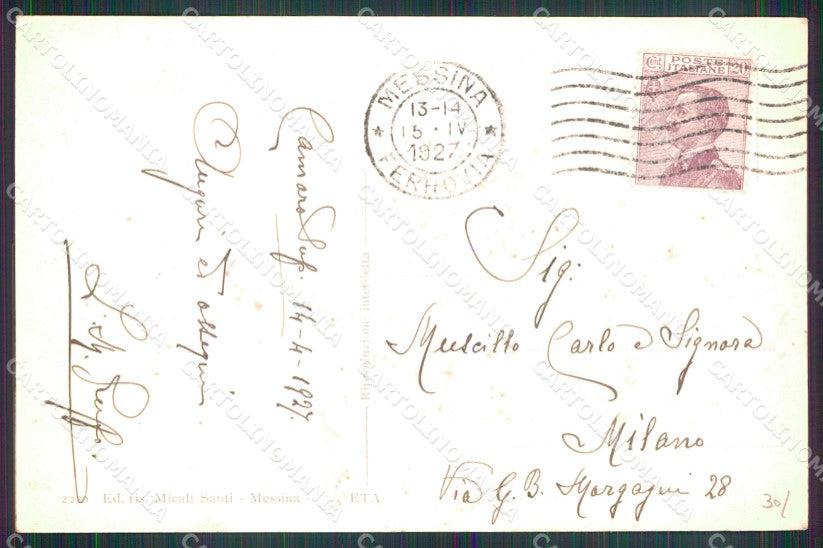 Camaro Sup. 14-4-1927.
Auguri ed ossequi
MESSINA
13-14
15·IV
1927
FERROVIA
POSTE
Cent ITALIANE 20
Sig:
Muscillo Carlo e Signora
Milano
Via G. B. Morgagni 28
Riproduzione interdetta
2220 Ed. ris. Micali Santi - Messina
ETA
30/
CARTOLINOMANIA